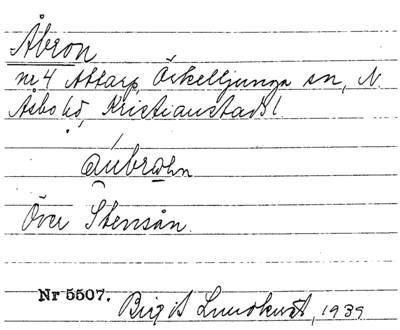 Åbron
nr 4 Attarp, Örkelljunga sn, N.
Åsbo hd, Kristianstads l
Över Stensån.
Nr 5507. Birgit Lundkvist, 1939